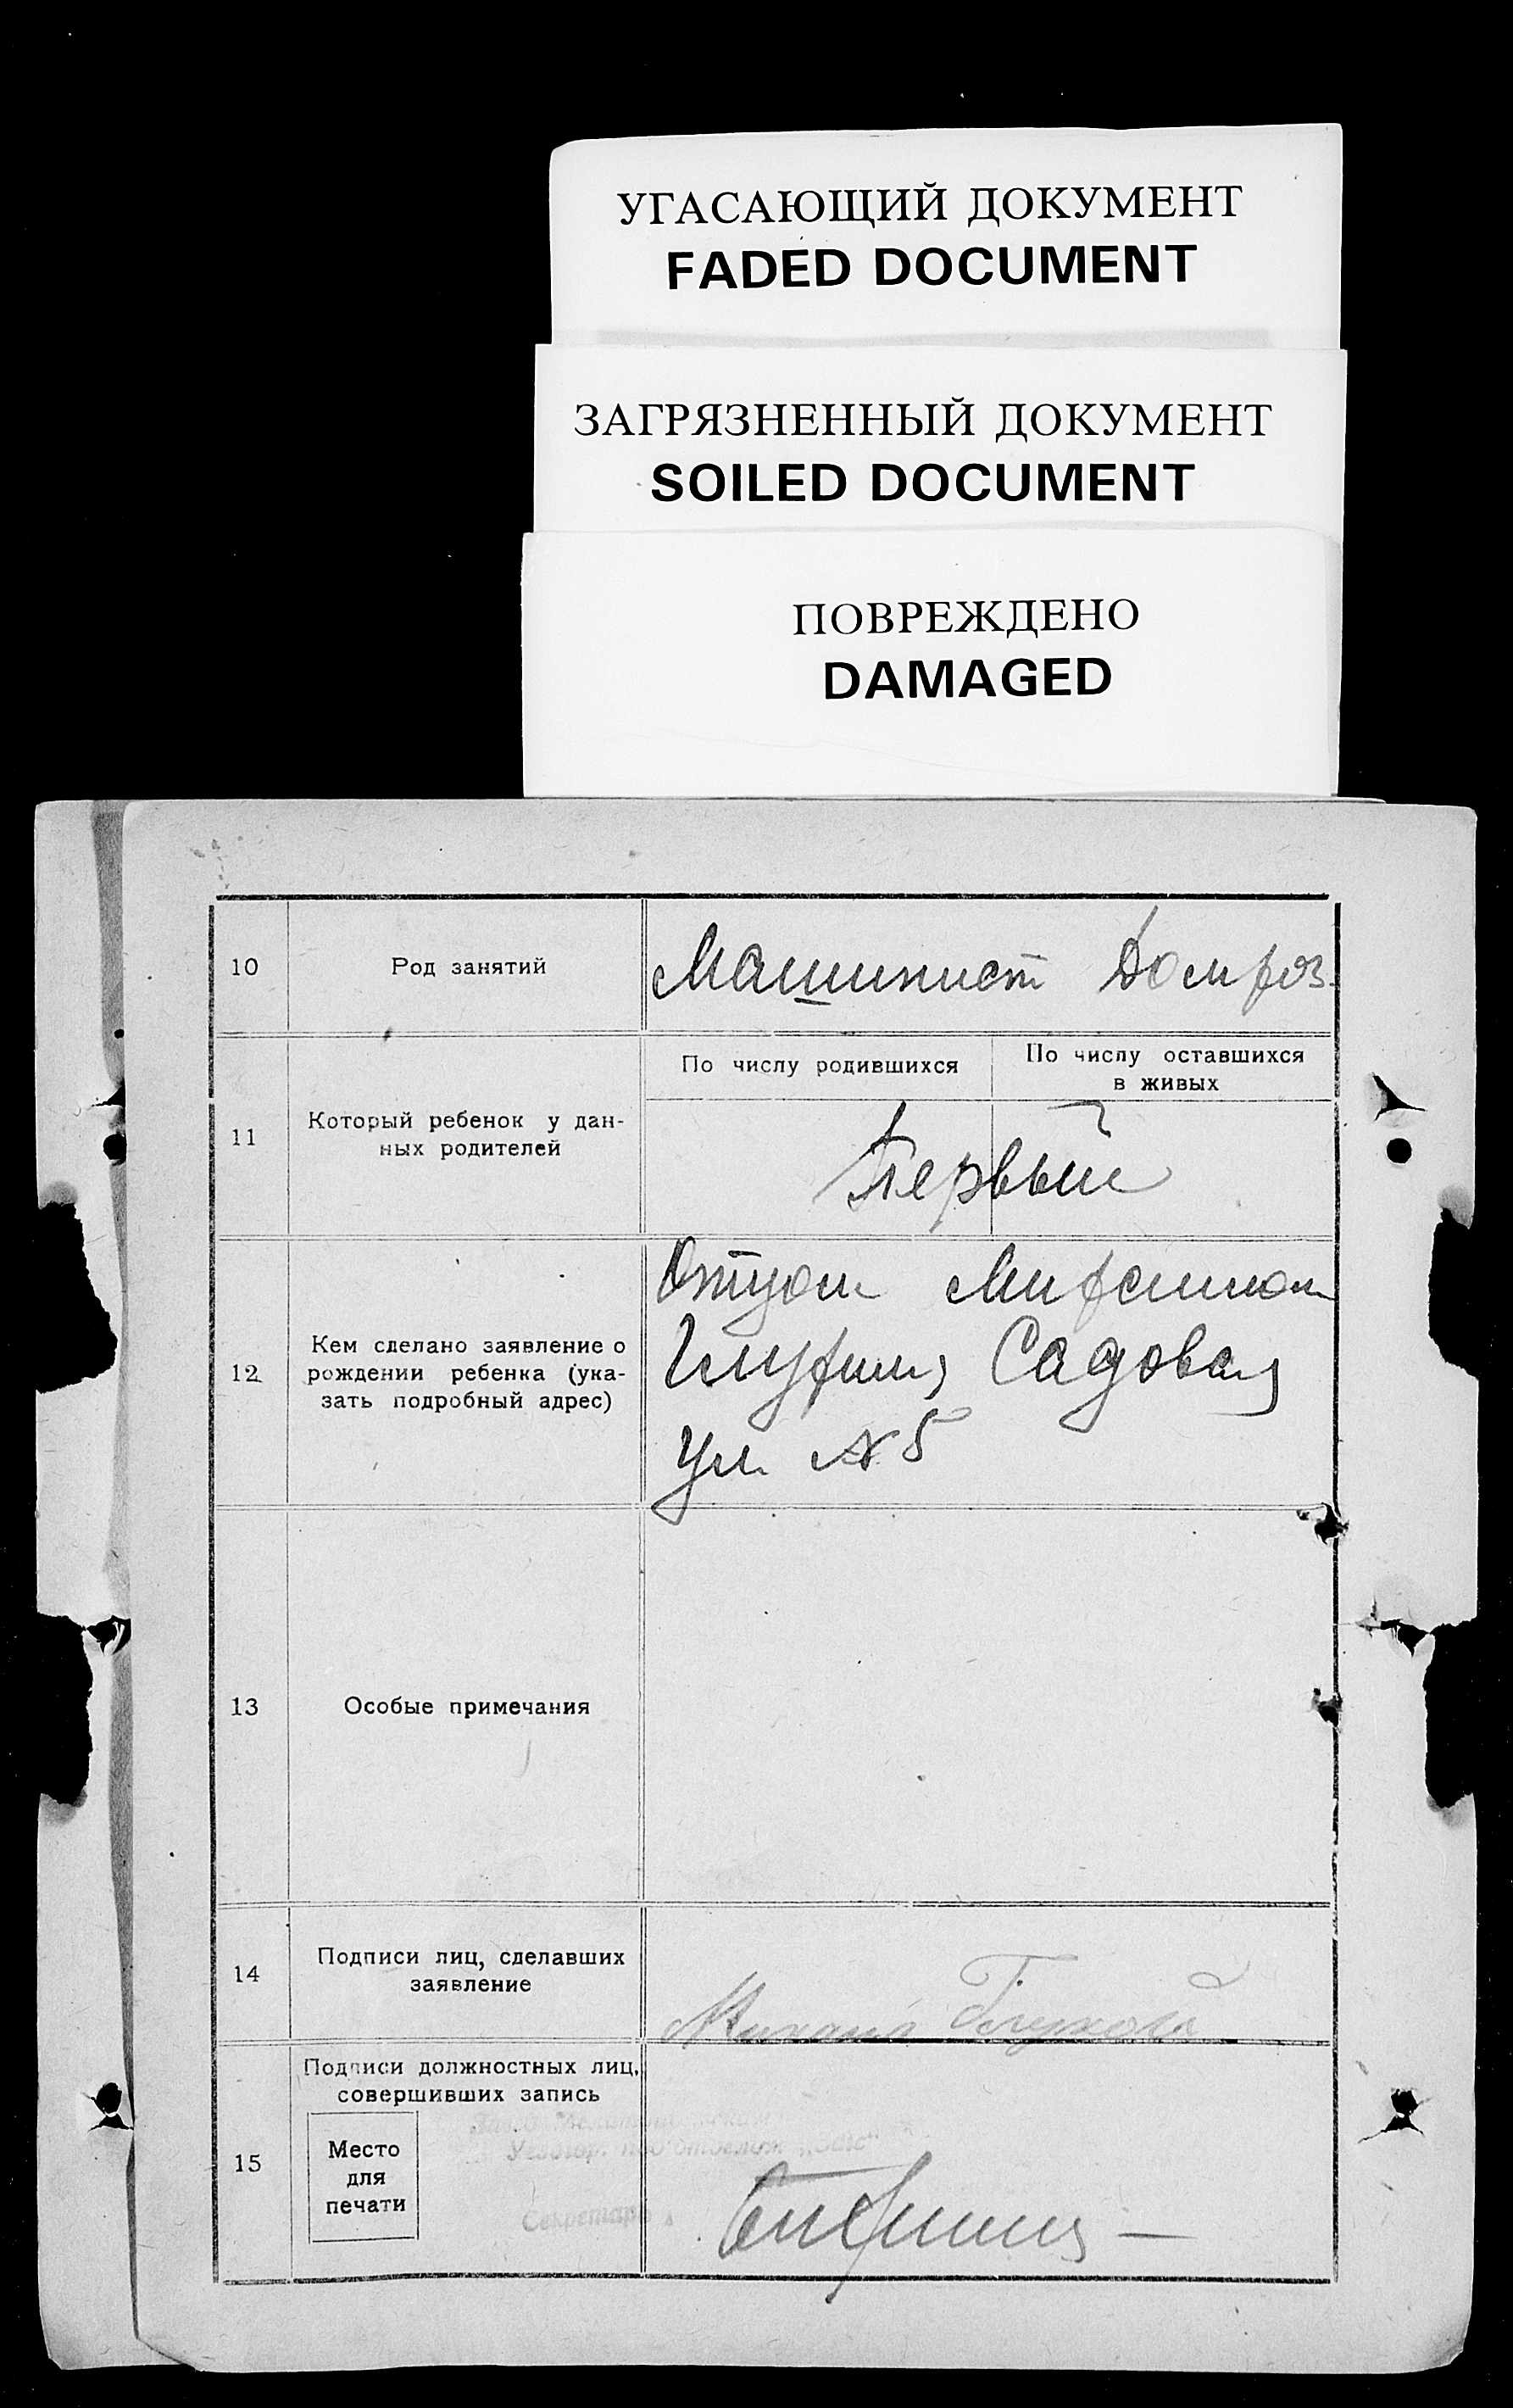 УГАСАЮЩИЙ ДОКУМЕНТ
FADED DOCUMENT
ЗАГРЯЗНЕННЫЙ ДОКУМЕНТ
SOILED DOCUMENT
ПОВРЕЖДЕНО
DAMAGED
10
Род занятий
Машинист Домхоз.
11
Который ребенок у дан-
ных родителей
По числу родившихся
По числу оставшихся
в живых
Первый
12
Кем сделано заявление о
рождении ребенка (ука-
зать подробный адрес)
Отцом
Садовая
ул. № 5
13
Особые примечания
14
Подписи лиц, сделавших
заявление
15
Подписи должностных лиц,
совершивших запись
Место
для
печати
Секретарь